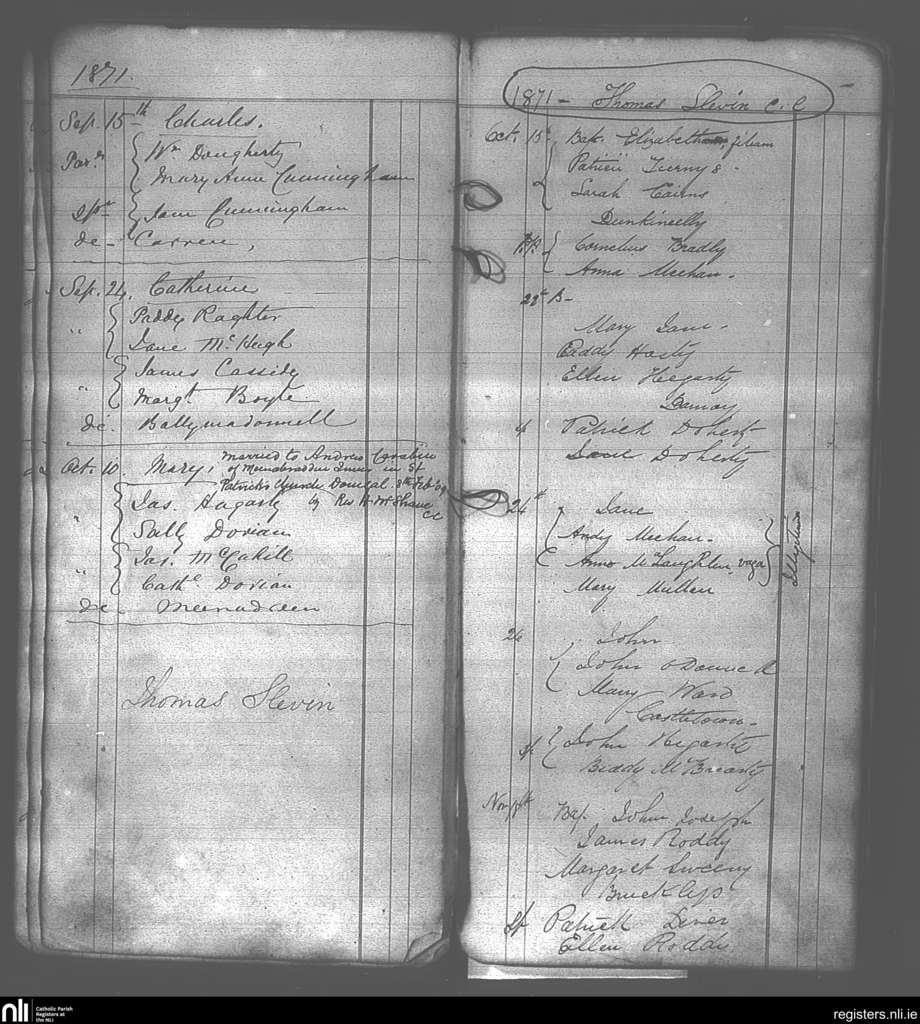 1871.
Sep. 15th Charles.
Par.ts Wm Dougherty
Mary Anne Cunningham
Spr Jane Cunningham
de - Correen,
Sep. 24, Catherine
" Paddy Raghter
Jane McHugh
" James Cassidy
Margt Boyle
de. Ballymacdonnell
Oct. 10 Mary, married to Andrew
of in St
Patrick's Church Donegal 8th Feb '09
Jas. Hagarty by Rev H McShane
CC
" Sally Dorian
" Jas. McCahill
Cathe Dorian
de - Meenadreen
Thomas Slevin
1871 - Thomas Slevin C.C
Oct. 15 Bap. Elizabeth filiam
Patricii Tierny &
Sarah Cairns
Dunkineelly
Cornelius Bradly
Anna Meehan.
22d B-
Mary Jane.
Paddy Hasty
Ellen Hegarty
Darnay
sp Patrick Dohert
Jane Doherty
24th Jane
Andy Meehan.
Anne McLaughlin, vaga Illegitime
Mary Mullen
26 John
John O'Donnell
Mary Ward
Castletown.
sp John Hegarty
Biddy McBrearty
Nov Bap. John Joseph
James Roddy
Margaret Sweeny
Bruckless
sp Patrick Dever
Ellen Roddy
nli Catholic Parish
Registers at
the NLI
registers.nli.ie